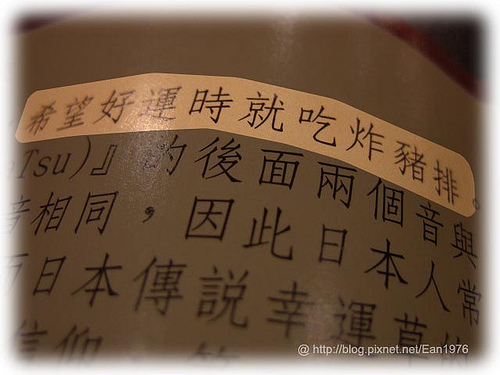 希望好運時就吃炸豬排。
Tsu)』的後面兩個音與
音相同,因此日本人常
而日本傳說幸運草的
信仰
@ http://blog.pixnet.net/Ean1976